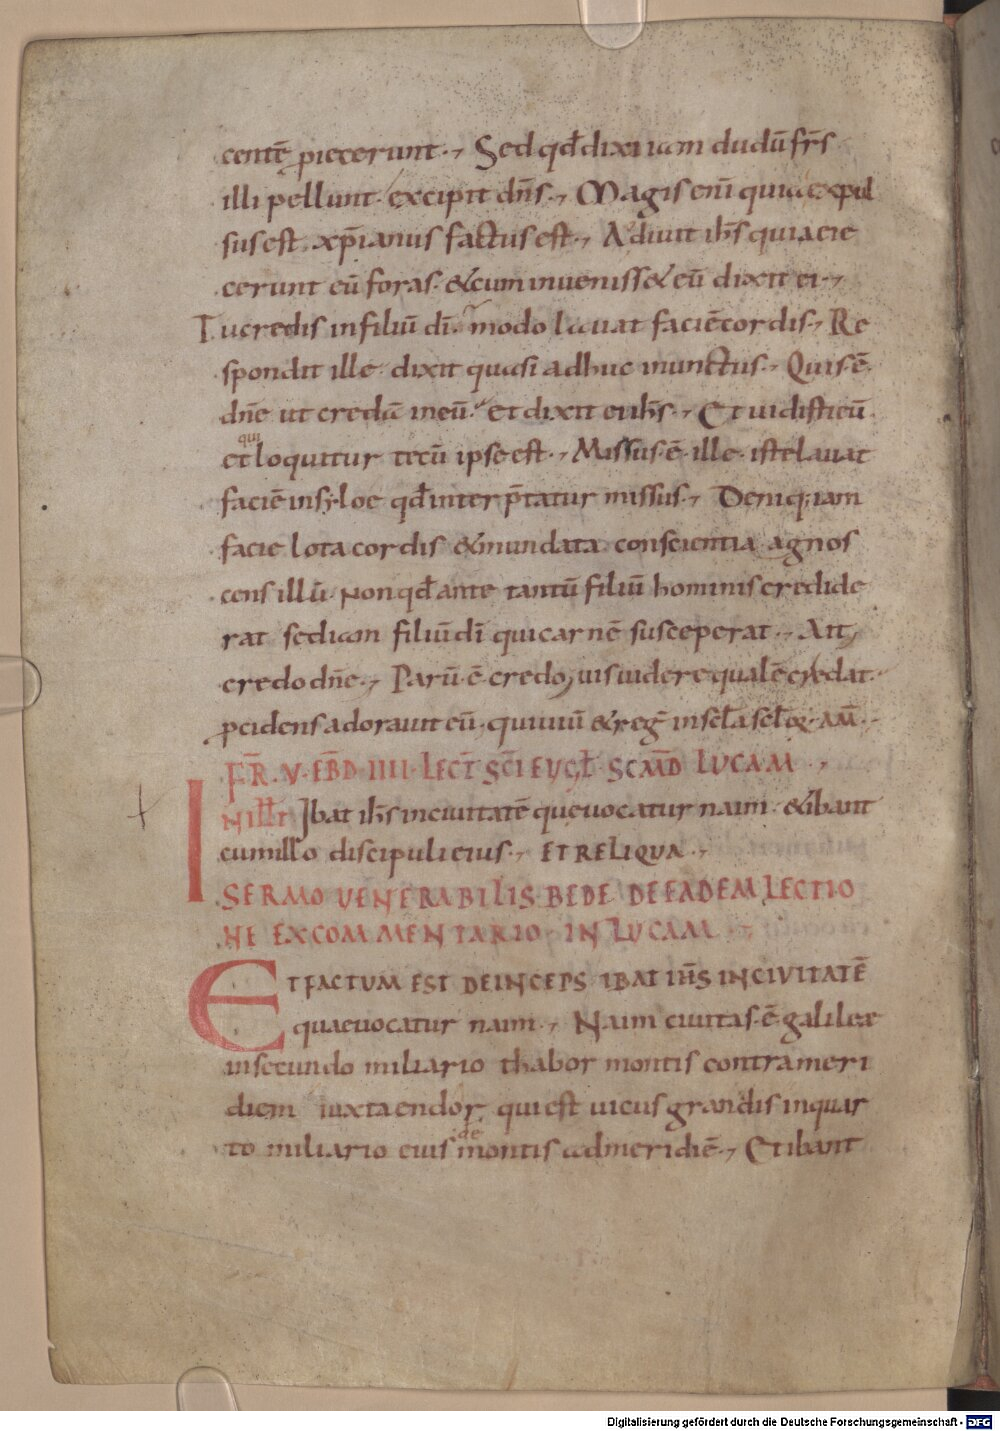 centē piecerunt · Sed qđ dixi iam dudū frs̄
illi pellunt · excipit dn̄s · Magis eni̅ quia expul
sus est · xp̄ianus factus est · Audiuit ih̄s quia eie
cerunt eū foras · & cum inueniss& eū dixit ei ·
Tu credis in filiū dī · modo lauat faciē cordis · Re
spondit ille · dixit quasi adhuc inunctus · Quis · ē ·
dn̄e ut credā in eū · et dixit ei ih̄s · Et uidisti eū ·
qui
et loquitur tecū ipse est · Missus · ē · ille · iste lauat
faciē in syloe qđ interp̄tatur missus · Deniq; iam
facie lota cordis & mundata conscientia agnos
cens illū · Non qđ ante tantū filiū hominis credide
rat sed iam filiū dī qui carnē susceperat · Ait
credo dn̄e · Parū · ē · credo, uis uidere qualē credat ·
pcidens adorauit eū · qui uiuit & regn̄ in scl̄a scl̄oꝝ · AM̄ ·
FR̄ · V · EBD̄ · IIII · LECT̄ SCĪ EUGL̄ · SCMD̄ LUCAM ·
IN ILL̄ T̄ Ibat ih̄s in ciuitatē que uocatur naim · & ibant
cum illo discipuli eius · ET RELIQUA ·
SERMO VENERABILIS BEDE DE EADEM LECTIO
NE EX COMMENTARIO · IN LUCAM
ET FACTUM EST DEINCEPS IBAT IH̄S IN CIVITATĒ
quae uocatur naim · Naim ciuitas · ē · galileæ
in secundo miliario thabor montis contra meri
diem iuxta endor, qui est uicus grandis in quar
de
to miliario eius montis ad meridiē · Et ibant
Digitalisierung gefördert durch die Deutsche Forschungsgemeinschaft - DFG